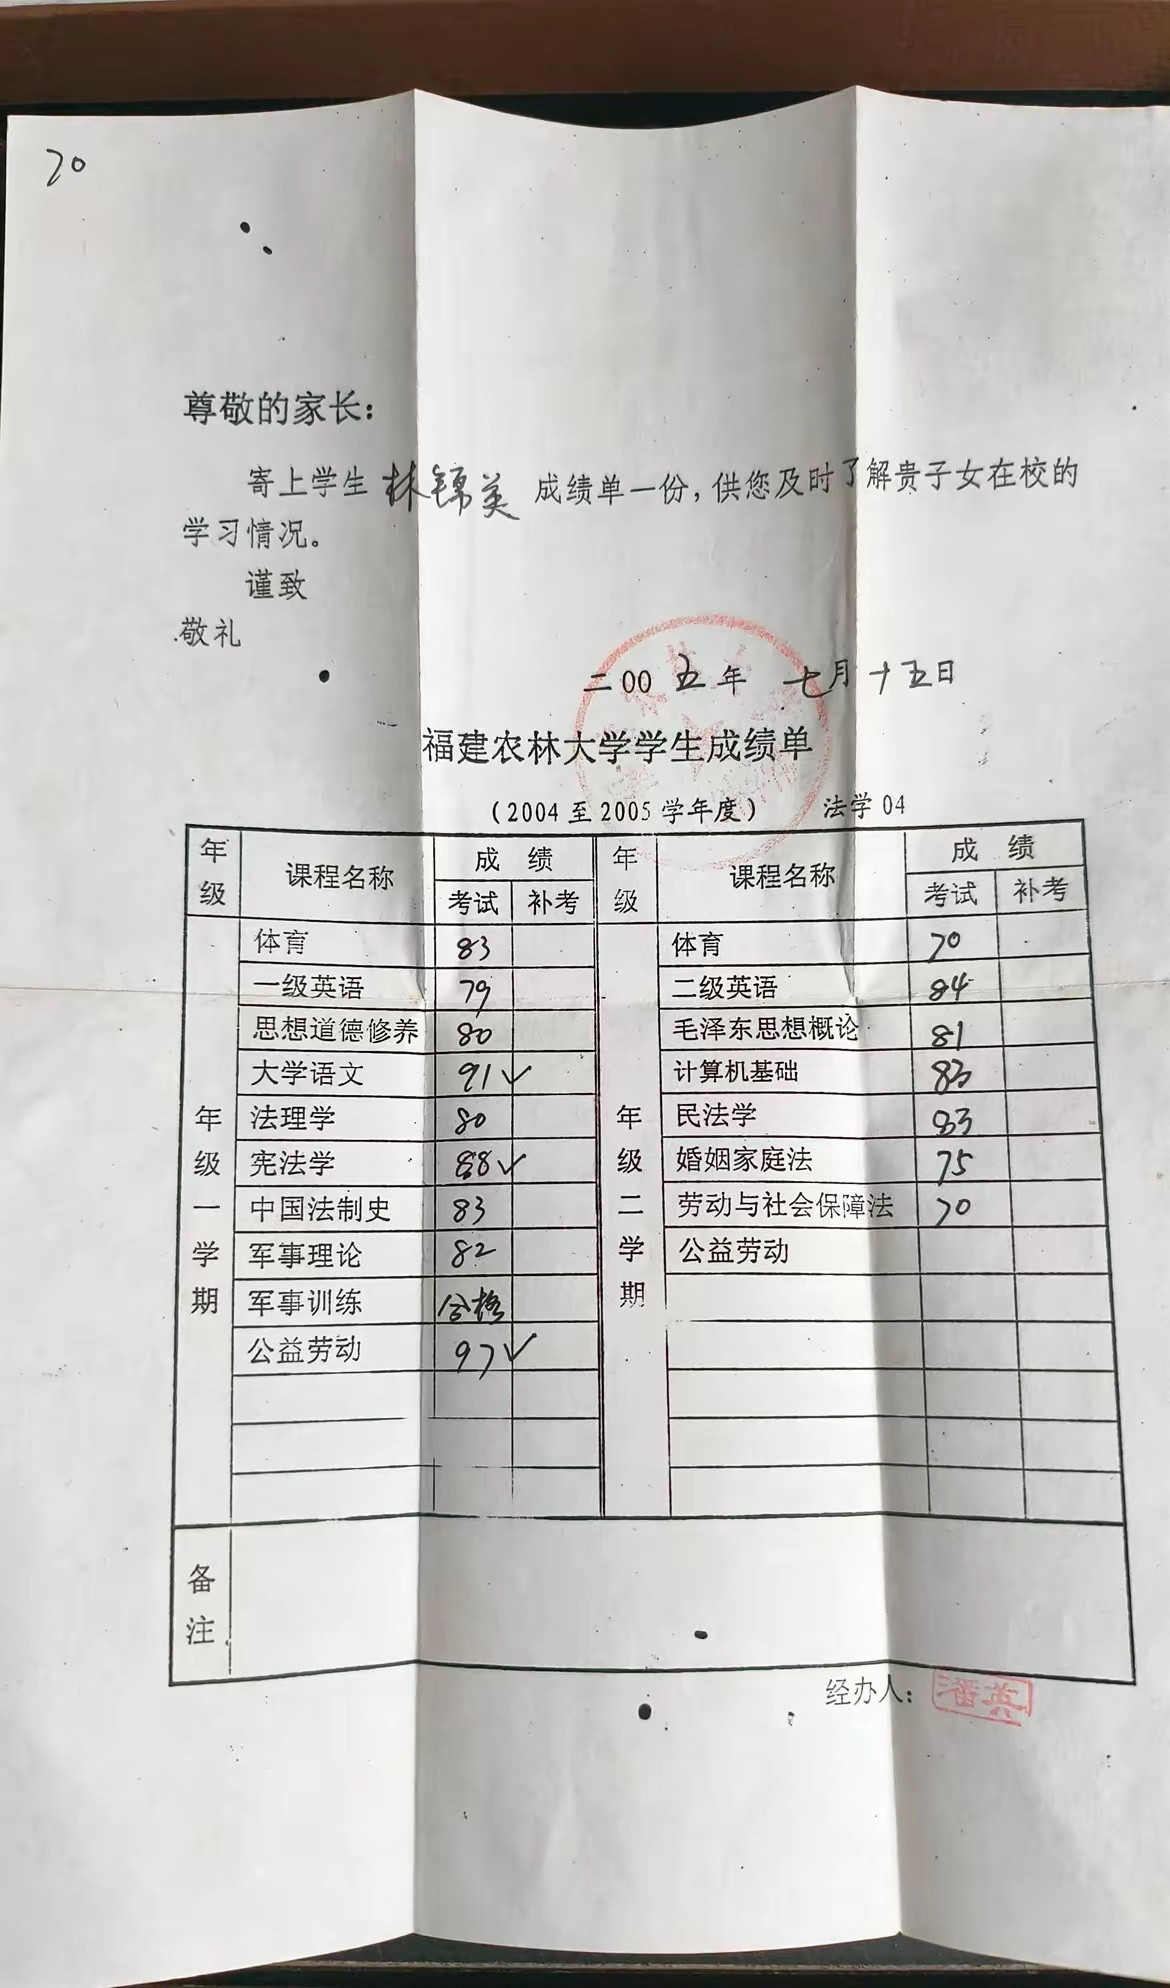 20
尊敬的家长：
寄上学生 林锦美 成绩单一份，供您及时了解贵子女在校的
学习情况。
谨致
敬礼
二00五年 七月十五日
福建农林大学学生成绩单
（2004至2005学年度） 法学04
年级 课程名称 成绩 年级 课程名称 成绩
考试 补考 考试 补考
体育 83 体育 70
一级英语 79 二级英语 84
思想道德修养 80 毛泽东思想概论 81
大学语文 91✓ 计算机基础 83
年级一学期 法理学 80 年级二学期 民法学 83
宪法学 88✓ 婚姻家庭法 75
中国法制史 83 劳动与社会保障法 70
军事理论 82 公益劳动
军事训练 合格
公益劳动 97✓
备注
经办人： 潘英